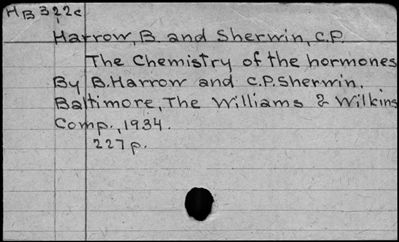 HB 322c
Harrow, B. and Sherwin, C.P.
The Chemistry of the hormones
By B. Harrow and C.P. Sherwin.
Baltimore, The Williams & Wilkins
Comp., 1934.
227 p.